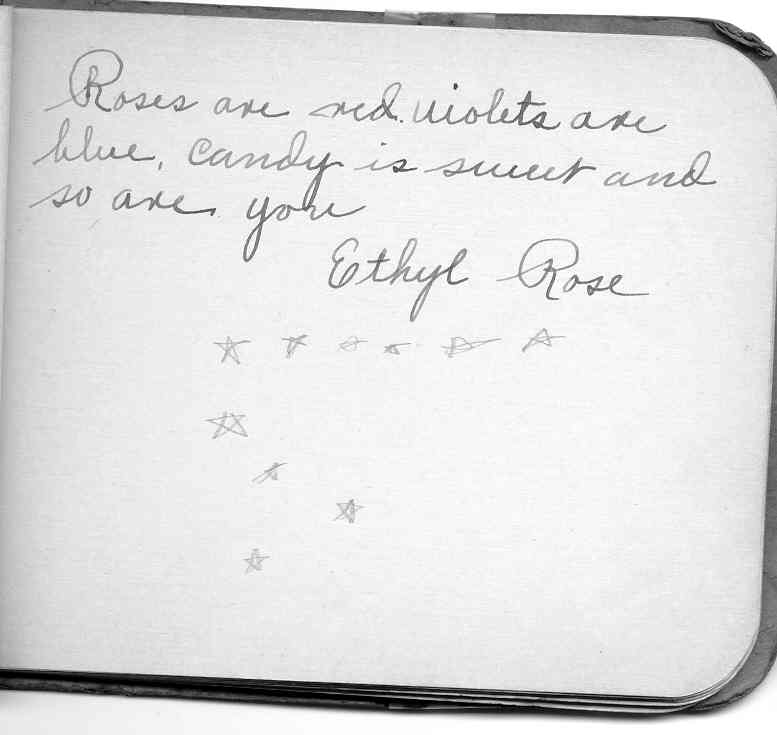 Roses are red. Violets are
blue, candy is sweet and
so are you
Ethyl Rose